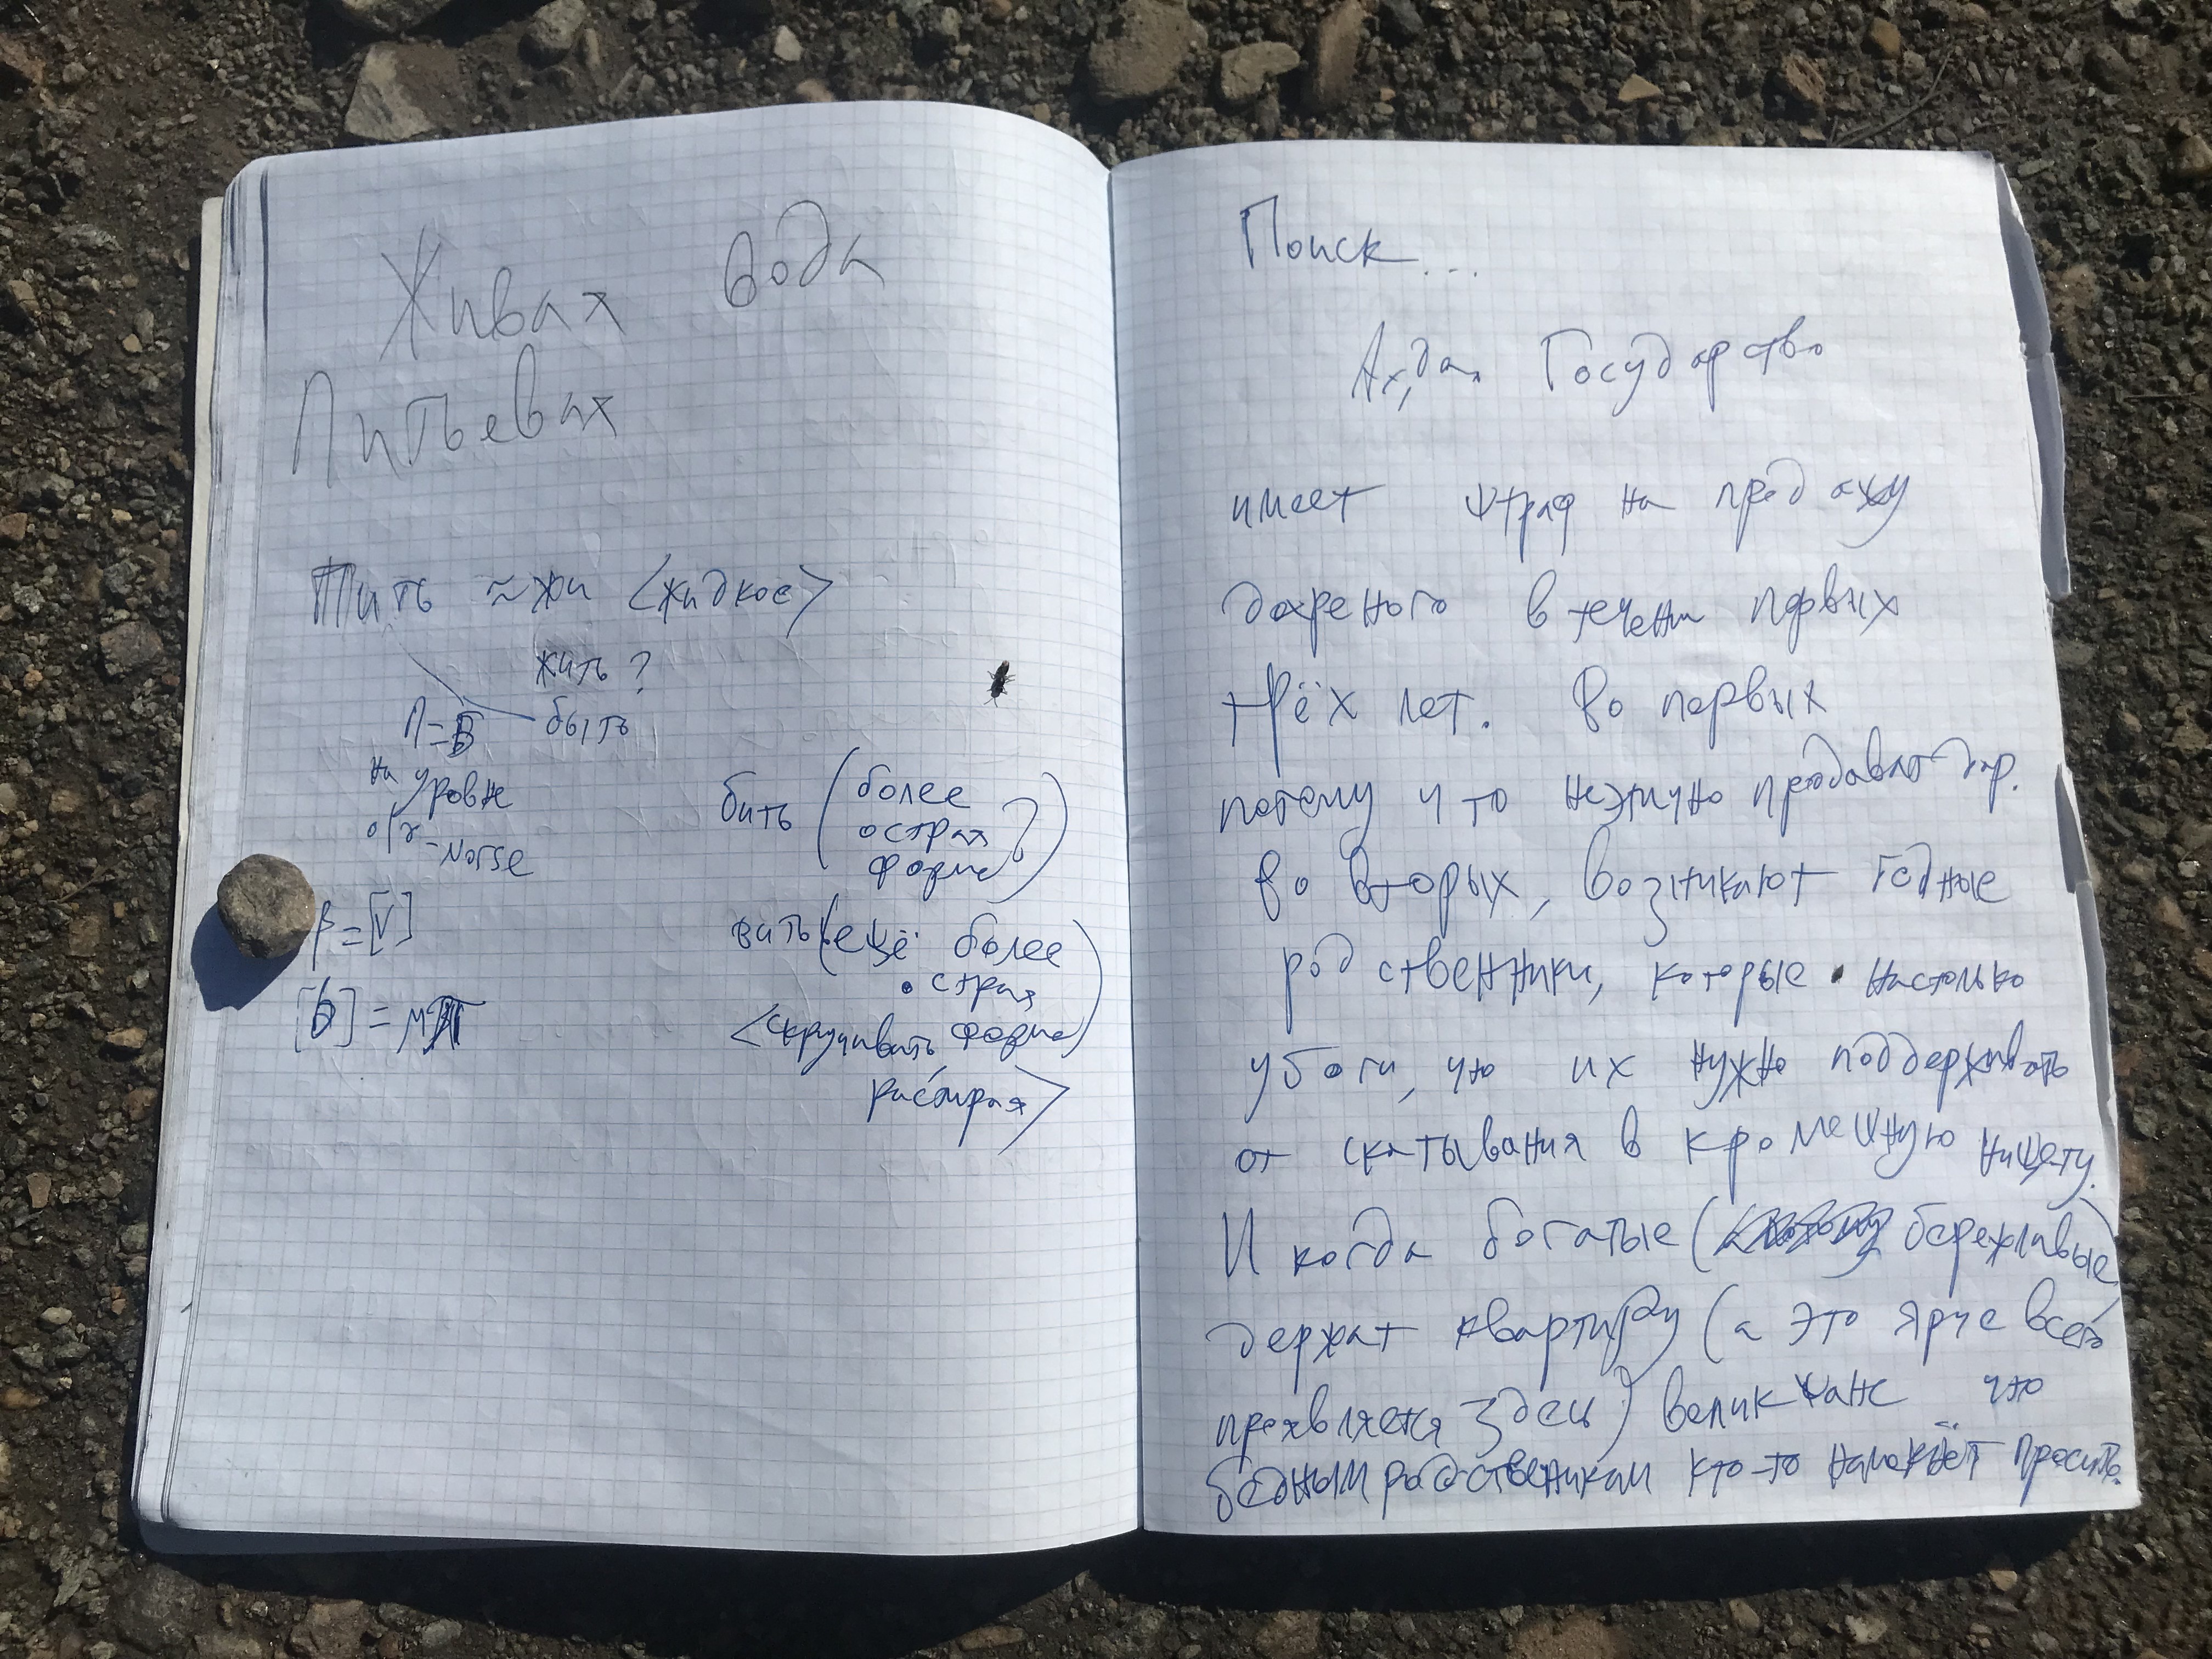 Живая вода
Питьевая
Пить ≈ жи <жидкое>
жить ?
П=Б быть
на уровне
old-Norse
β=[v]
[б] = мп
бить (более
острая
форма?)
вить (ещё более
острая
<скручивать, форма)
растирая>
Поиск...
Ах, да, Государство
имеет штраф на продажу
дареного в течени первых
трёх лет. Во первых
потому что неэтично продавать дар.
Во вторых, возникают бедные
родственники, которые настолько
убоги, что их нужно поддерживать
от скатывания в кромешную нищету.
И когда богатые ( бережлавые)
держат квартиру (а это ярче всего
проявляется здесь) велик шанс что
бедным родственикам кто-то намекнёт просить.